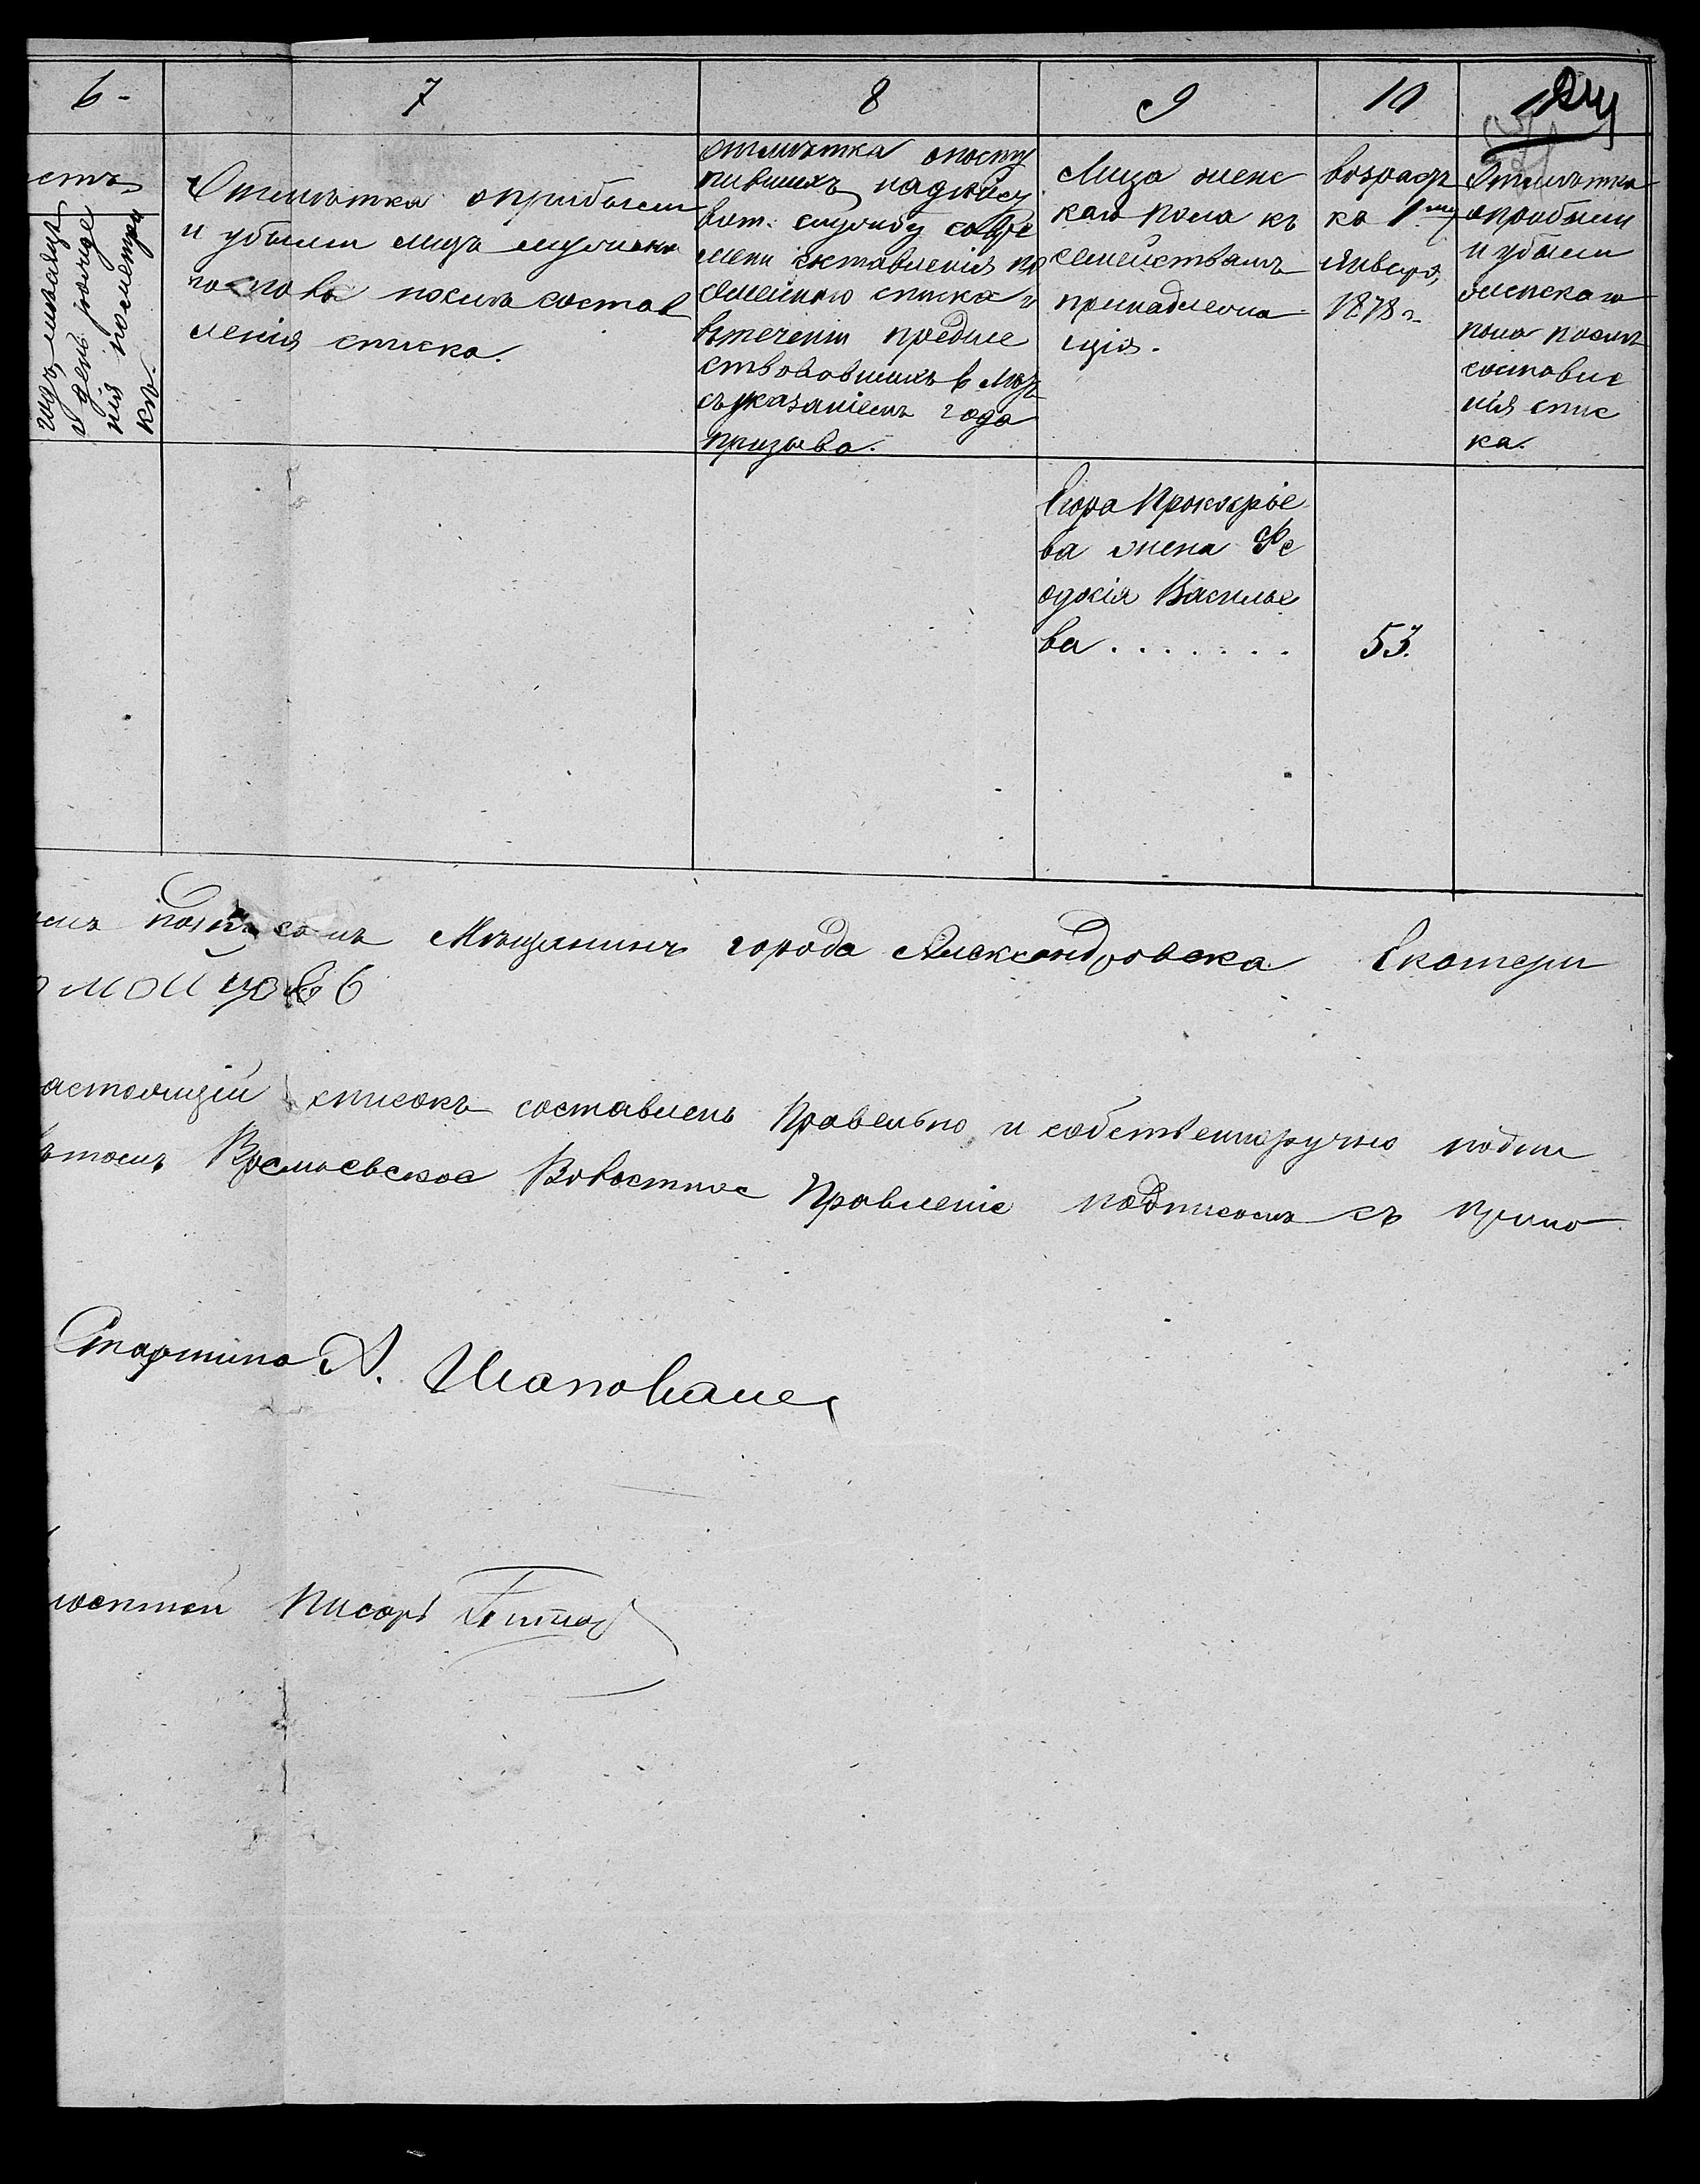 6 7 8 9 10
стъ
годъ, мѣсяцъ
и день рожде
нія по метри
кѣ.
Отмѣтка о прибыли
и убыли лицъ мужска
го пола послѣ состав
ленія списка.
отмѣтка опосту
пившихъ надѣйст
вит. службу совре
мени составленія по
семейнаго списка и
втеченіи предше
ствовавшихъ 6 лѣтъ
съ указаніемъ года
призыва.
Лица женс
каго пола къ
семействамъ
принадлежа
щія.
возрастъ
ка 1му
января
1878 г.
Отмѣтка
оприбыли
и убыли
женскаго
пола послѣ
составле
нія спис
ка.
Егора Прокофіе
ва жена Ѳе
одосія Василье
ва . . . . . . . 53.
Мѣщанинъ города Александровска Екатери
астоящій списокъ составленъ правельно и собственноручно подпи
Времьевское Волостное Правленіе подписомъ съ прило
Старшина А. Шаповалъ
лостной Писарь